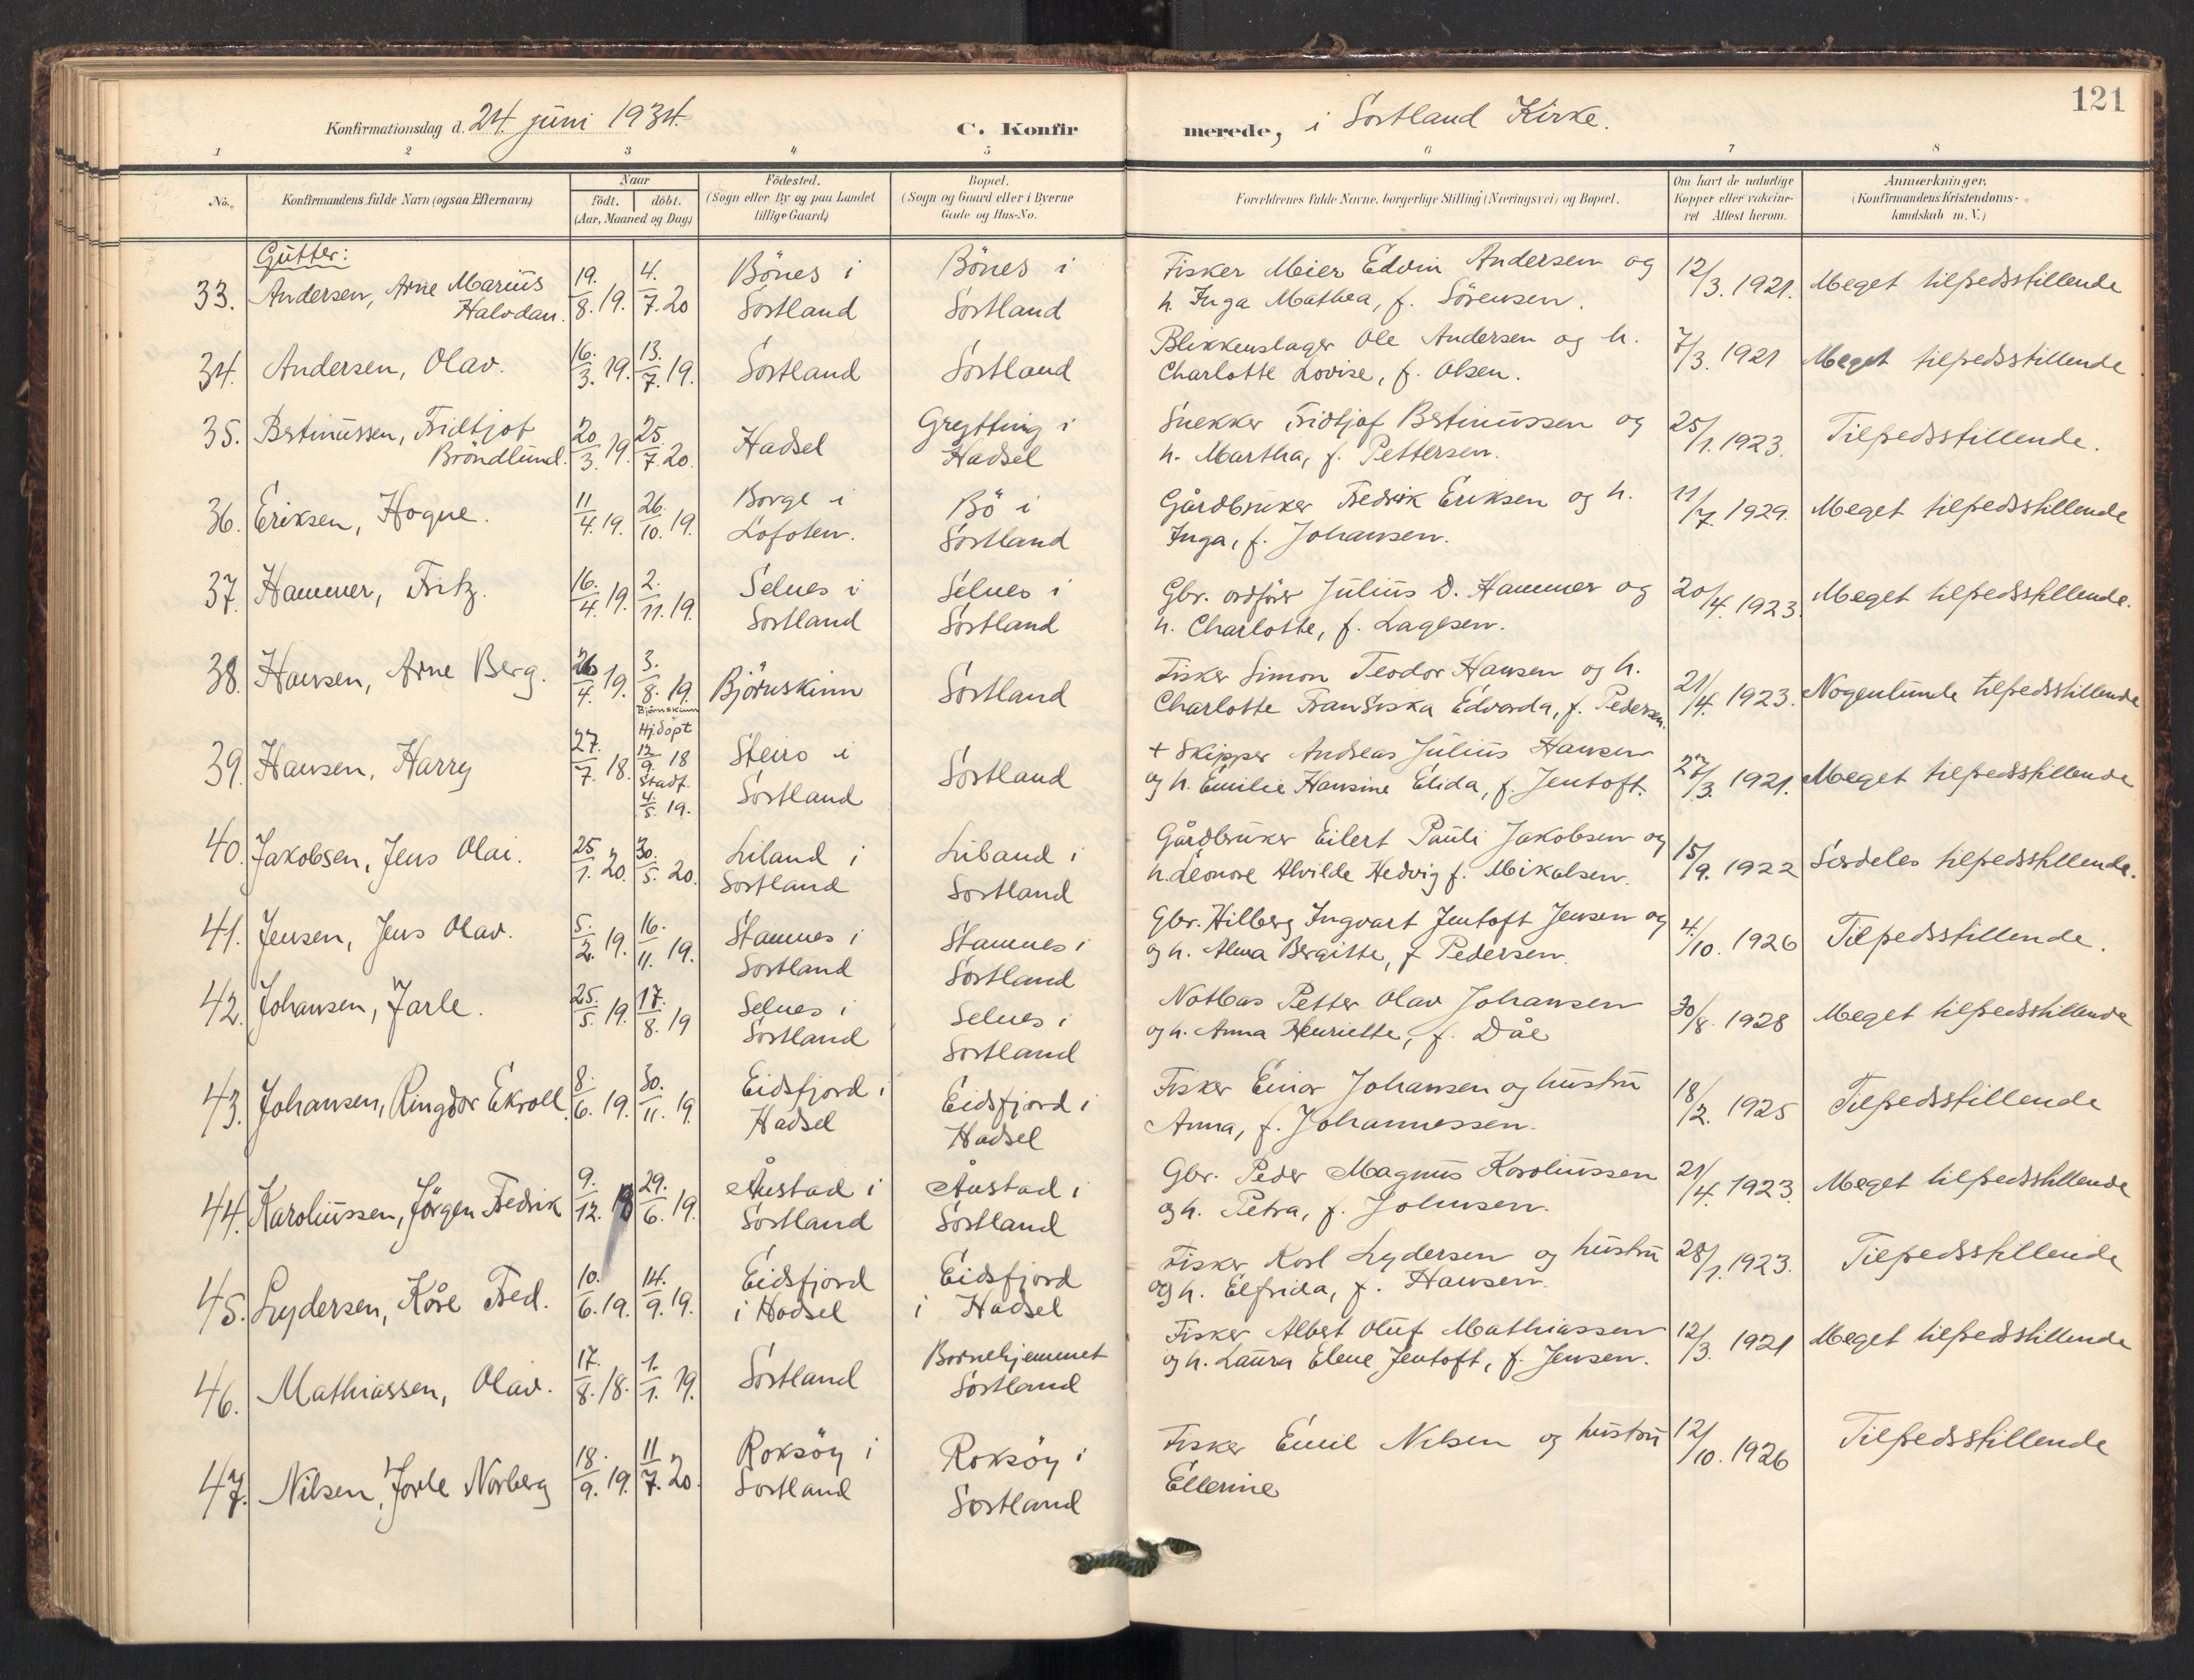 121
Konfirmationsdag d. 24. juni 1934. C. Konfirmerede, i Sortland Kirke.
1 2 3 4 5 6 7 8
No. Konfirmandens fulde Navn (ogsaa Efternavn) Naar födt. döbt. (Aar, Maaned og Dag) Födested. (Sogn eller By og paa Landet tillige Gaard) Bopæl. (Sogn og Gaard eller i Byerne Gade og Hus-No. Forældrenes fulde Navne, borgerlige Stilling (Næringsvei) og Bopæl. Om havt de naturlige Kopper eller vakcineret Attest herom. Anmærkninger. (Konfirmandens Kristendomskundskab m. V.)
Gutter:
33. Andersen, Arne Marius Halvdan. 19/8. 19. 4./7. 20 Bönes i Sortland Bönes i Sortland Fisker Meier Edvin Andersen og h. Inga Mathea, f. Sörensen. 12/3. 1921. Meget tilfredsstillende
34. Andersen, Olav. 16./3. 19. 13./7. 19. Sortland Sortland Blikkenslager Ole Andersen og h. Charlotte Lovise, f. Olsen. 7/3. 1921 Meget tilfredsstillende
35. Bertinussen, Fridtjof Bröndlund. 20/3. 19. 25./7. 20. Hadsel Grytting i Hadsel Snekker Fridtjof Bertinussen og h. Martha, f. Pettersen. 25/1. 1923. Tilfredsstillende.
36. Eriksen, Hogne. 11/4. 19. 26./10. 19. Borge i Lofoten. Bö i Sortland Gårdbruker Fredrik Eriksen og h. Inga, f. Johansen. 11/7. 1929. Meget tilfredsstillende
37. Hammer, Fritz. 16./4. 19. 2./11. 19. Selnes i Sortland Selnes i Sortland Gbr. ordförer Julius D. Hammer og h. Charlotte, f. Lagesen. 20/4. 1923. Meget tilfredsstillende.
38. Hansen, Arne Berg. 26/4. 19. 3./8. 19. Björnskinn Björnskinn Sortland Fisker Simon Teodor Hansen og h. Charlotte Fransiska Edvarda, f. Pedersen. 21/4. 1923. Nogenlunde tilfredsstillende
39. Hansen, Harry 27./7. 18. Hj.döpt 12/9. 18 Stadf. 4./5. 19. Steiro i Sortland Sortland + Skipper Andreas Julius Hansen og h. Emilie Hansine Elida, f. Jentoft. 27/3. 1921. Meget tilfredsstillende
40. Jakobsen, Jens Olai. 25/1. 20. 30./5. 20. Liland i Sortland Liland i Sortland Gårdbruker Eilert Pauli Jakobsen og h. Leonore Alvilde Hedvig f. Mikalsen. 15/9. 1922 Særdeles tilfredsstillende.
41. Jensen, Jens Olav. 5./2. 19. 16./11. 19. Stamnes i Sortland Stamnes i Sortland Gbr. Hilberg Ingvart Jentoft Jensen og og h. Alma Bergitte, f. Pedersen. 4./10. 1926 Tilfredsstillende.
42. Johansen, Jarle. 25./5. 19. 17./8. 19 Selnes i Sortland Selnes i Sortland Notbas Petter Olav Johansen og h. Anna Henriette, f. Dåe 30/8. 1928 Meget tilfredsstillende
43. Johansen, Ringdor Ekroll. 8./6. 19. 30./11. 19. Eidsfjord i Hadsel Eidsfjord i Hadsel Fisker Einar Johansen og hustru Anna, f. Johannessen. 18/2. 1925 Tilfredsstillende
44. Karoliussen, Jörgen Fredrik 9./12. 18 29./6. 19. Åustad i Sortland Åustad i Sortland Gbr. Peder Magnus Karoliussen og h. Petra, f. Johnsen. 21/4. 1923. Meget tilfredsstillende
45. Lydersen, Kåre Fred. 10./6. 19. 14./9. 19. Eidsfjord i Hadsel Eidsfjord i Hadsel Fisker Karl Lydersen og hustru og h. Elfrida, f. Hansen. 28/1. 1923. Tilfredsstillende
46. Mathiassen, Olav. 17./8. 18. 1./1. 19. Sortland Barnehjemmet Sortland Fisker Albert Oluf Mathiassen og h. Laura Elene Jentoft, f. Jensen. 12/3. 1921 Meget tilfredsstillende
47. Nilsen, Jarle Norberg 18./9. 19. 11/7. 20. Roksöy i Sortland Roksöy i Sortland Fisker Emil Nilsen og hustru Ellerine 12/10. 1926 Tilfredsstillende